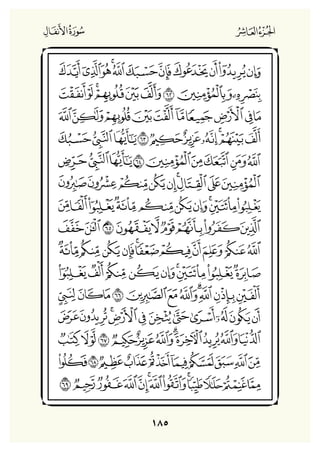 الجُزْءُ العَاشِرُ سُورَةُ الأَنفَالِ
وَإِن يُرِيدُوٓاْ أَن يَخۡدَعُوكَ فَإِنَّ حَسۡبَكَ ٱللَّهُۚ هُوَ ٱلَّذِيٓ أَيَّدَكَ
بِنَصۡرِهِۦ وَبِٱلۡمُؤۡمِنِينَ ٦٢ وَأَلَّفَ بَيۡنَ قُلُوبِهِمۡۚ لَوۡ أَنفَقۡتَ
مَا فِي ٱلۡأَرۡضِ جَمِيعٗا مَّآ أَلَّفۡتَ بَيۡنَ قُلُوبِهِمۡ وَلَٰكِنَّ ٱللَّهَ
أَلَّفَ بَيۡنَهُمۡۚ إِنَّهُۥ عَزِيزٌ حَكِيمٞ ٦٣ يَٰٓأَيُّهَا ٱلنَّبِيُّ حَسۡبُكَ
ٱللَّهُ وَمَنِ ٱتَّبَعَكَ مِنَ ٱلۡمُؤۡمِنِينَ ٦٤ يَٰٓأَيُّهَا ٱلنَّبِيُّ حَرِّضِ
ٱلۡمُؤۡمِنِينَ عَلَى ٱلۡقِتَالِۚ إِن يَكُن مِّنكُمۡ عِشۡرُونَ صَٰبِرُونَ
يَغۡلِبُواْ مِاْئَتَيۡنِۚ وَإِن يَكُن مِّنكُم مِّاْئَةٞ يَغۡلِبُوٓاْ أَلۡفٗا مِّنَ
ٱلَّذِينَ كَفَرُواْ بِأَنَّهُمۡ قَوۡمٞ لَّا يَفۡقَهُونَ ٦٥ ٱلۡـَٰٔنَ خَفَّفَ
ٱللَّهُ عَنكُمۡ وَعَلِمَ أَنَّ فِيكُمۡ ضَعۡفٗاۚ فَإِن يَكُن مِّنكُم مِّاْئَةٞ
صَابِرَةٞ يَغۡلِبُواْ مِاْئَتَيۡنِۚ وَإِن يَكُن مِّنكُمۡ أَلۡفٞ يَغۡلِبُوٓاْ
أَلۡفَيۡنِ بِإِذۡنِ ٱللَّهِۗ وَٱللَّهُ مَعَ ٱلصَّٰبِرِينَ ٦٦ مَا كَانَ لِنَبِيٍّ
أَن يَكُونَ لَهُۥٓ أَسۡرَىٰ حَتَّىٰ يُثۡخِنَ فِي ٱلۡأَرۡضِۚ تُرِيدُونَ عَرَضَ
ٱلدُّنۡيَا وَٱللَّهُ يُرِيدُ ٱلۡأٓخِرَةَۗ وَٱللَّهُ عَزِيزٌ حَكِيمٞ ٦٧ لَّوۡلَا كِتَٰبٞ
مِّنَ ٱللَّهِ سَبَقَ لَمَسَّكُمۡ فِيمَآ أَخَذۡتُمۡ عَذَابٌ عَظِيمٞ ٦٨ فَكُلُواْ
مِمَّا غَنِمۡتُمۡ حَلَٰلٗا طَيِّبٗاۚ وَٱتَّقُواْ ٱللَّهَۚ إِنَّ ٱللَّهَ غَفُورٞ رَّحِيمٞ ٦٩
١٨٥